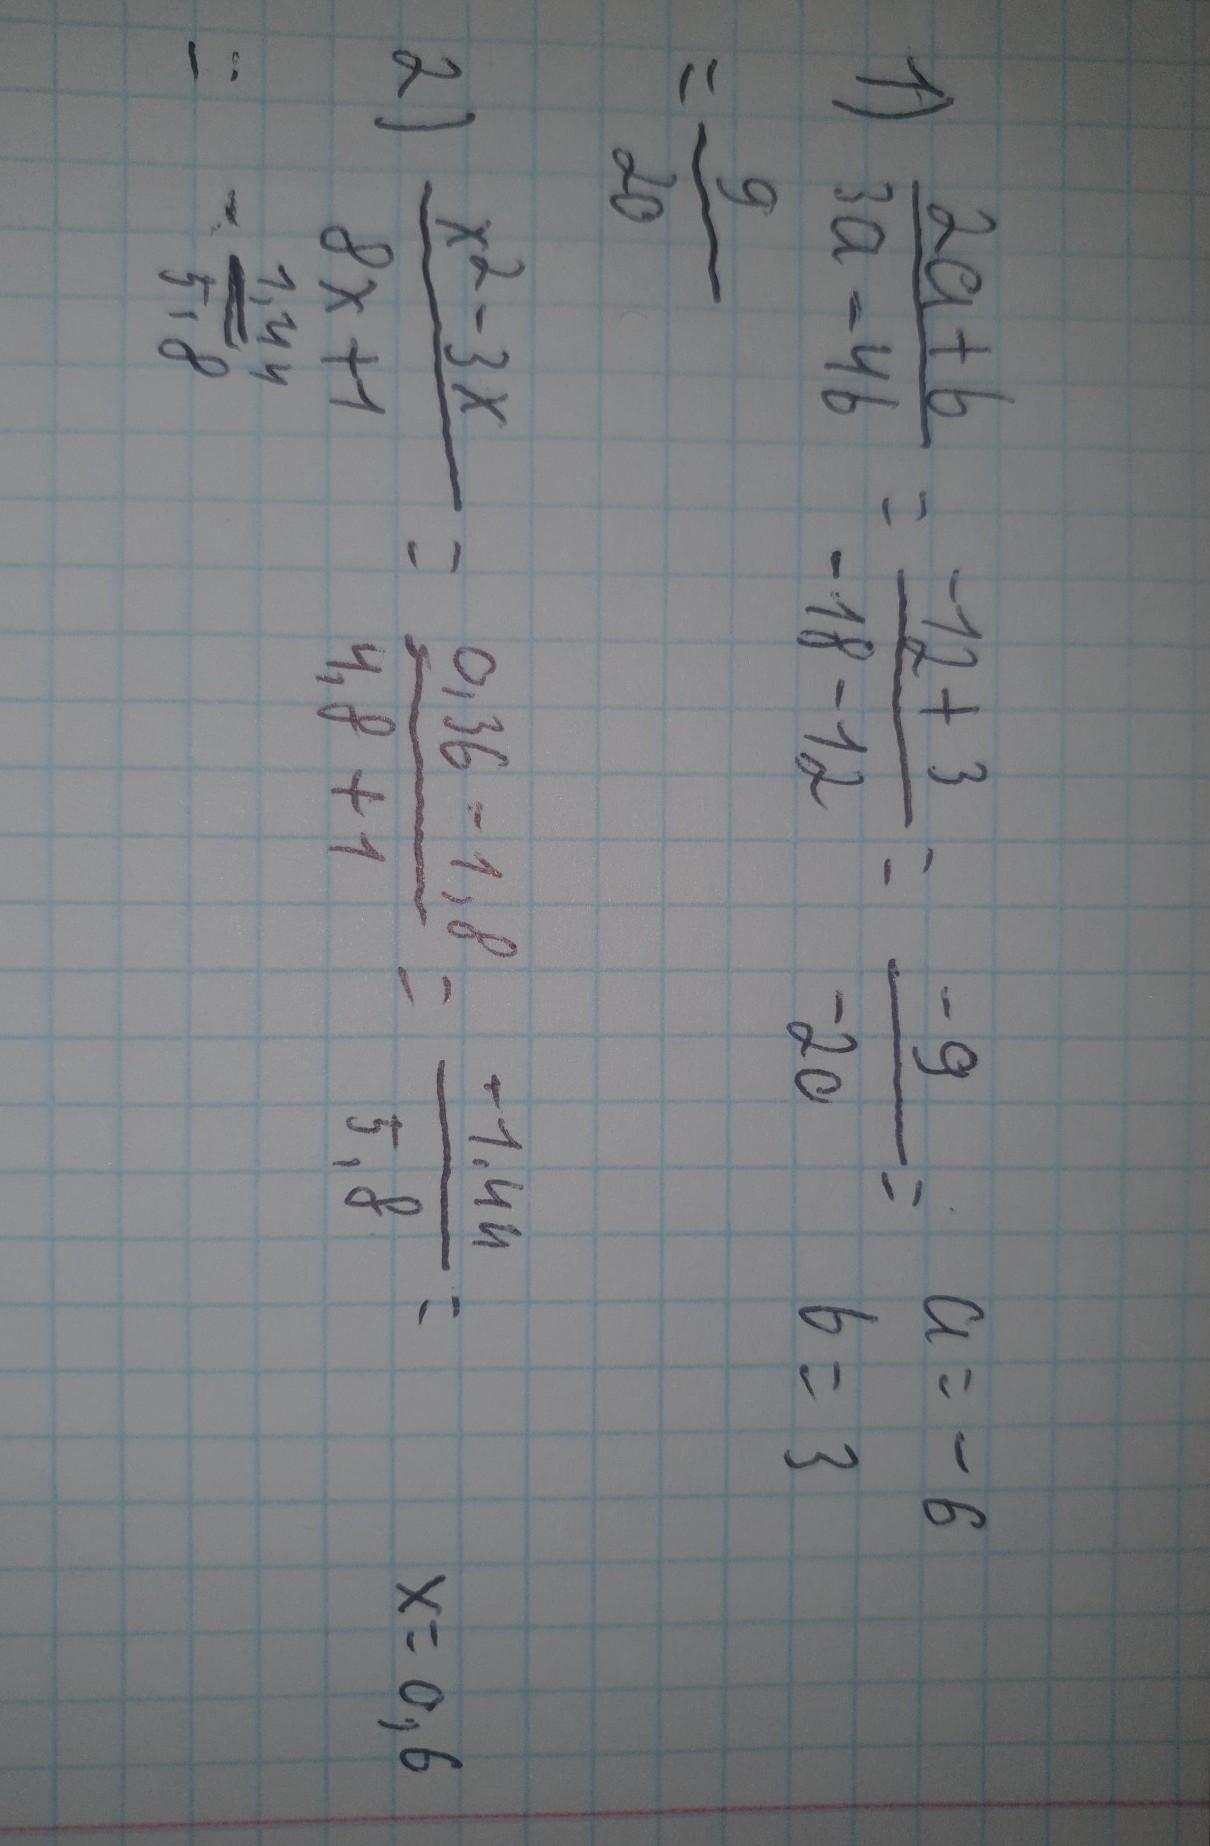 1) 2a+b / 3a-4b = -12+3 / -18-12 = -9 / -20 = a=-6
b=3
= 9 / 20
2) x²-3x / 8x+1 = 0,36-1,8 / 4,8+1 = -1,44 / 5,8 = x=0,6
= - 1,44 / 5,8